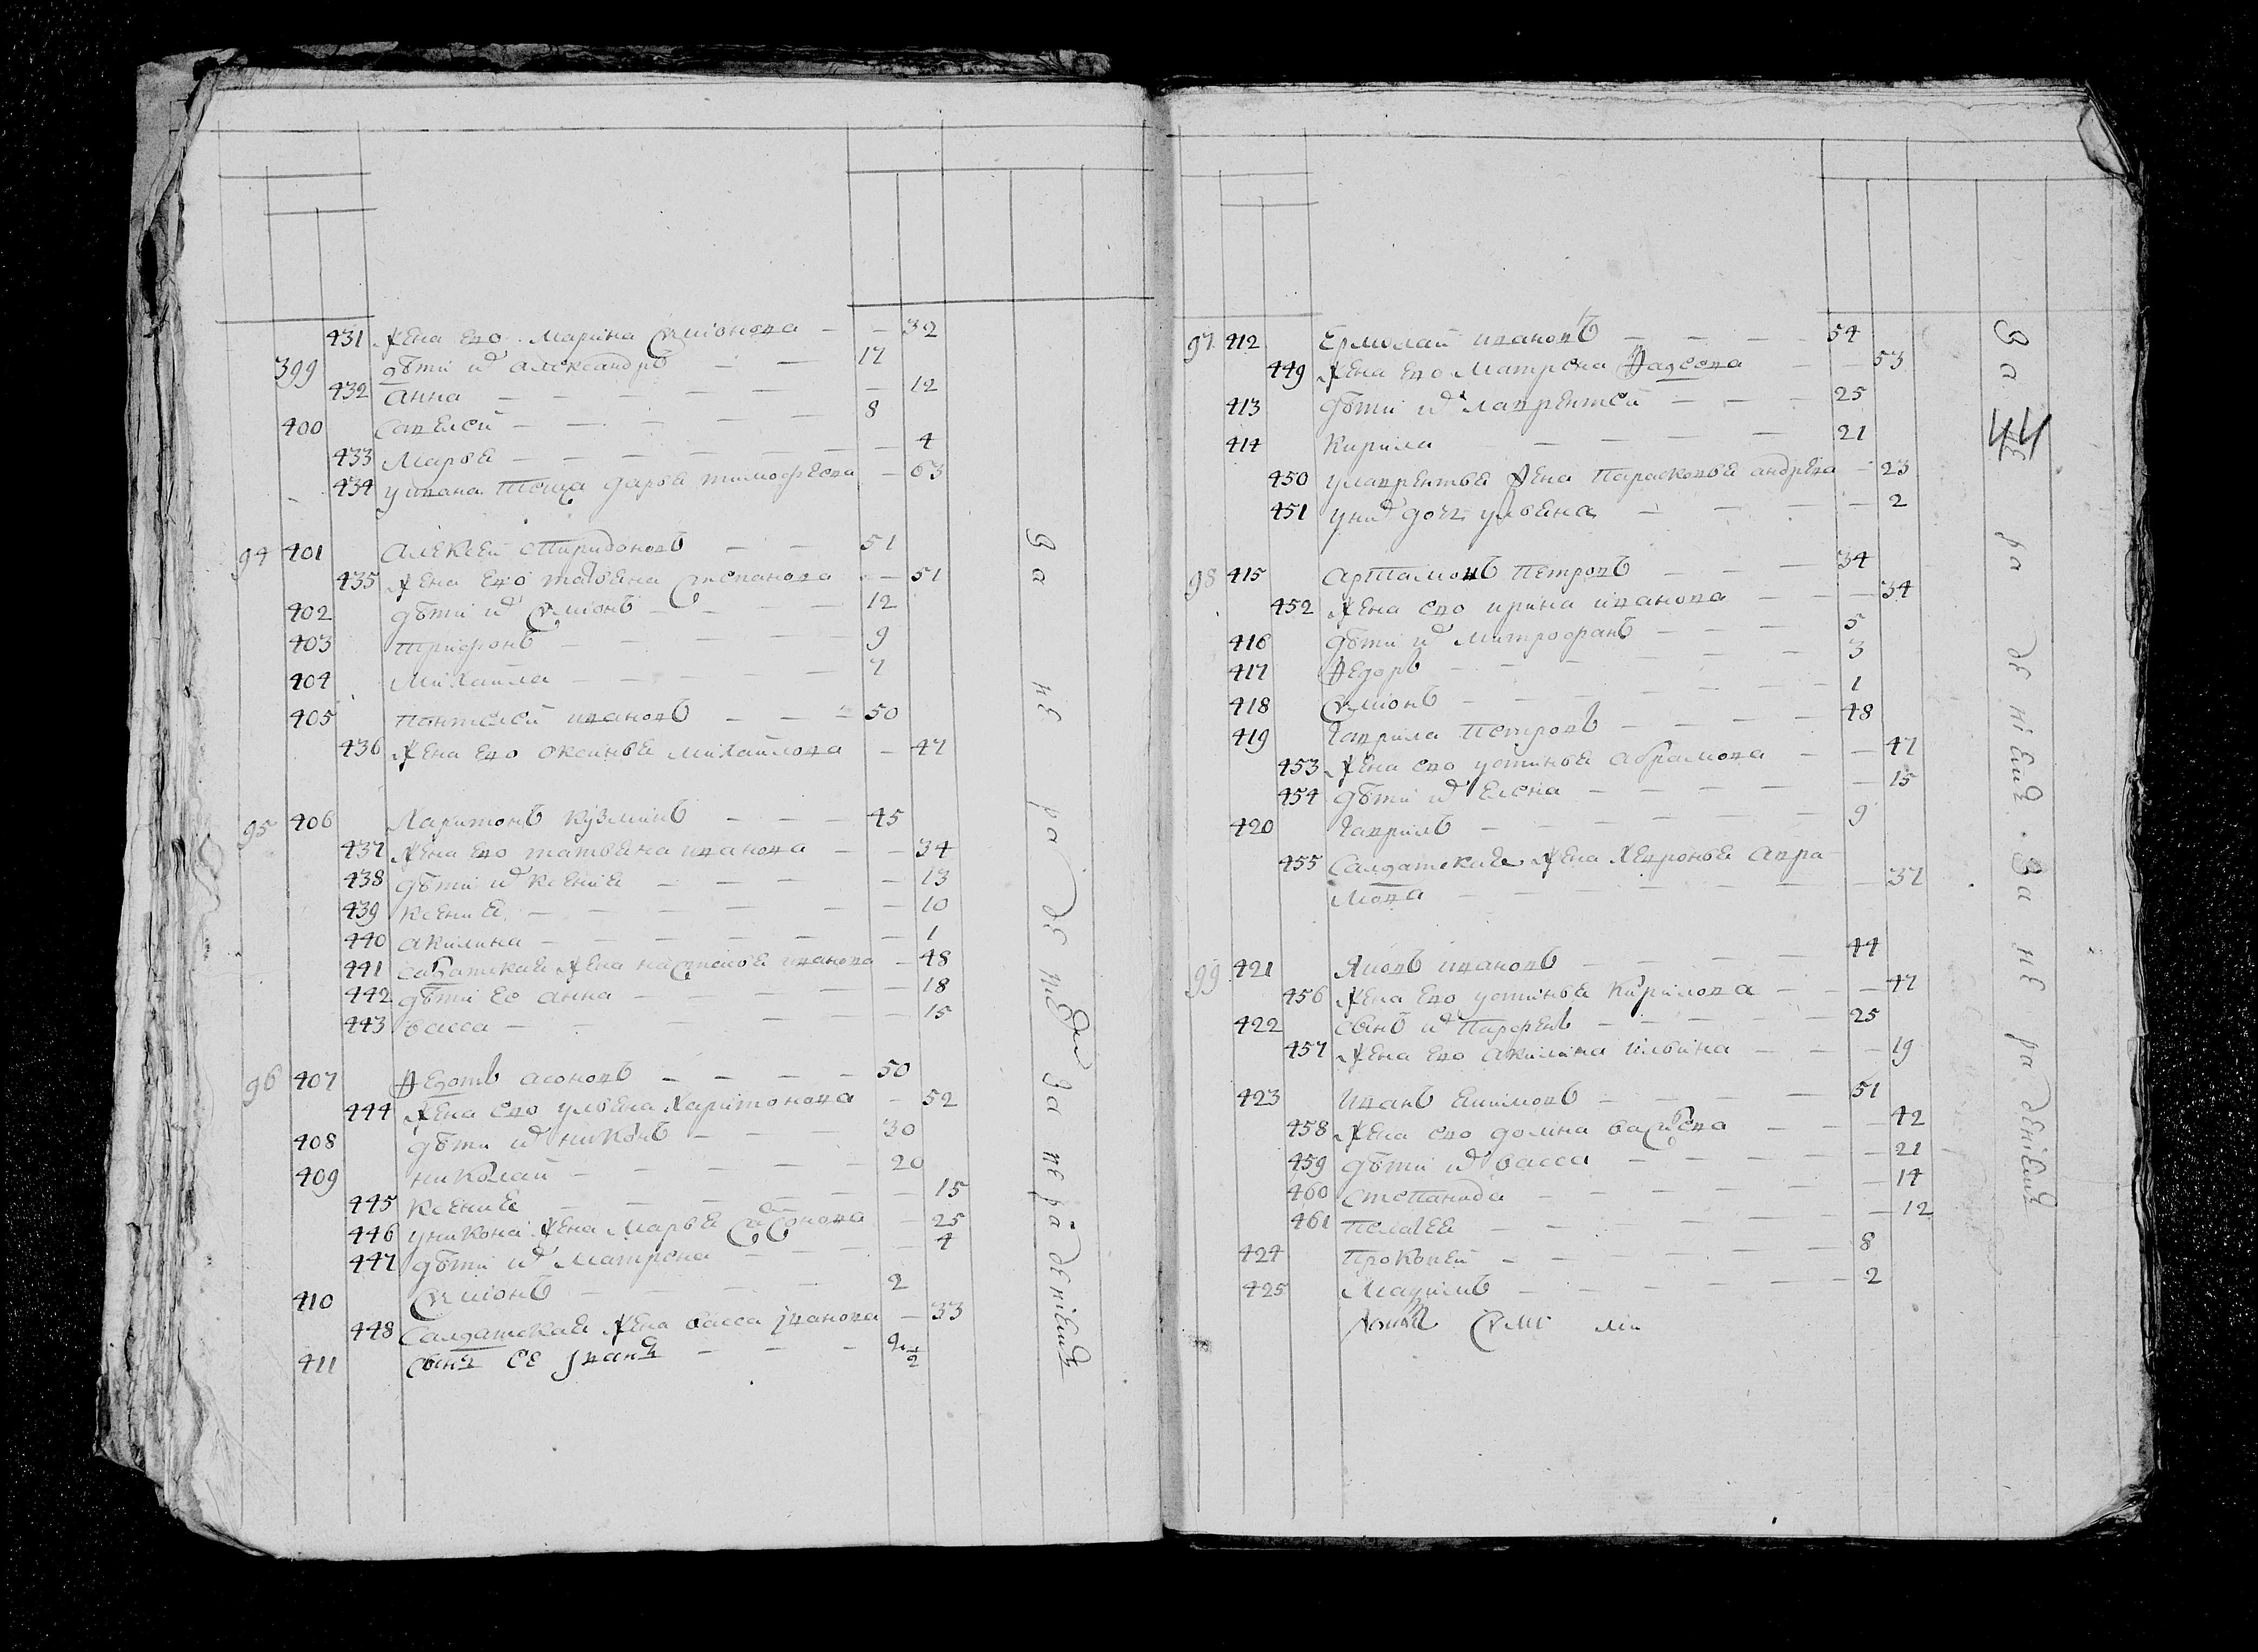 431 жена ево марина семионова — — 32
399 дѣти их александръ — — 17
432 анна — — — — — 12
400 савелей — — — — 8
433 марья — — — — — 4
434 у ивана теща дарья тимофеева — 63
94 401 алексей спиридоновъ — — 51
435 жена ево татьяна степанова — — 51
402 дѣти их семионъ — — — 12
403 трифонъ — — — — 9
404 михайла — — — — 7
405 понтелей ивановъ — — — 50
436 жена ево оксинья михайлова — 47
95 406 харитонъ кузминъ — — — 45
437 жена ево татьяна иванова — — 34
438 дѣти их ксения — — — — 13
439 ксения — — — — — 10
440 акилина — — — — — 1
441 жена настасья иванова — 48
442 дѣти ее анна — — — — 18
443 васса — — — — — 15
96 407 федотъ — — — — 50
444 жена ево ульяна харитонова — 52
408 дѣти их никонъ — — — 30
409 николай — — — — — 20
445 ксения — — — — — 15
446 у никона жена марья — 25
447 дѣти их матрена — — — — 4
410 семионъ — — — — 2
448 салдатская жена васса иванова — 33
411 сынъ ее иванъ — — — 2
за не ра де ние за не ра дениемъ
97 412 ермолай ивановъ — — — — 54
449 жена ево матрена фадеева — — 53
413 дѣти их лаврентей — — — 25
414 кирила — — — — 21
450 у лаврентья жена парасковья андреева — 23
451 у них дочь ульяна — — — — 2
98 415 артамонъ петровъ — — — 34
452 жена ево ирина иванова — — — 34
416 дѣти их митрофанъ — — — 5
417 федоръ — — — — — 3
418 семионъ — — — — — 1
419 гаврила петровъ — — — — 48
453 жена ево устинья абрамова — — 47
454 дѣти их елена — — — — — 15
420 гаврилъ — — — — — 9
455 салдатская жена хевронья авра
мова — — — — — — 37
99 421 ивановъ — — — — 44
456 жена ево устинья кирилова — — — 47
422 сынъ их парфенъ — — — — 25
457 жена ево акилина ильина — — — 19
423 иванъ екимовъ — — — — 51
458 жена ево домна — — — 42
459 дѣти их васса — — — — — 21
460 степанида — — — — — 14
461 пелагея — — — — — 12
424 прокопей — — — — — 8
425 — — — — — 2
44
за не ра де ниемъ за не ра дениемъ